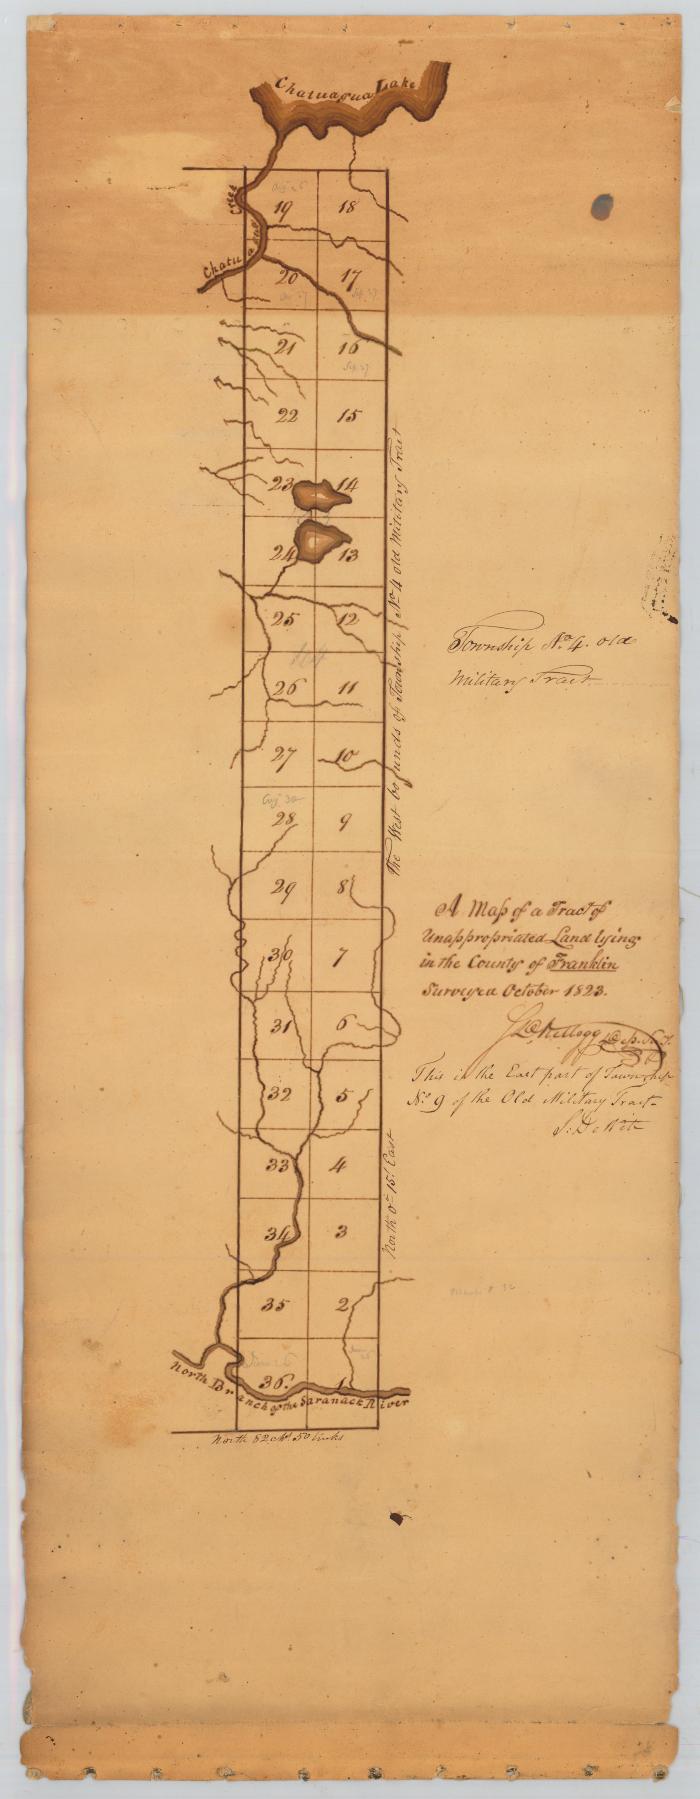 Chatuagua Lake
Creek
Chatuagua
19 18
20 17
21 16
22 15
23 14
24 13
25 12
26 11
27 10
28 9
29 8
30 7
31 6
32 5
33 4
34 3
35 2
36. 1
The West bounds of Township No. 4 old Military Tract
North 0° 15' East
North Branch of the Saranack River
North 82 ch. 50 links
Township No. 4. old
Military Tract
A Map of a Tract of
Unappropriated Land lying
in the County of Franklin
Surveyed October 1823.
Kellogg Dep. S.
This is the East part of Township
No. 9 of the Old Military Tract
S. De Witt